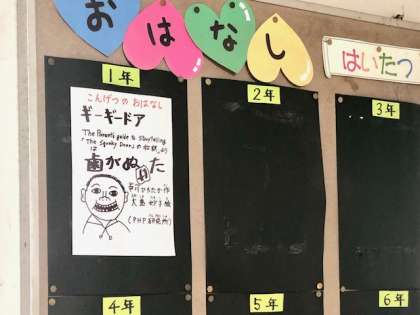 おはなし
はいたつ
1年
2年
3年
こんげつの おはなし
ギーギードア
The Parent's guide to Storytelling
「The Squeaky Door」の
は
歯がぬけた
大島妙子 絵
(PHP研究所)
4年
5年
6年